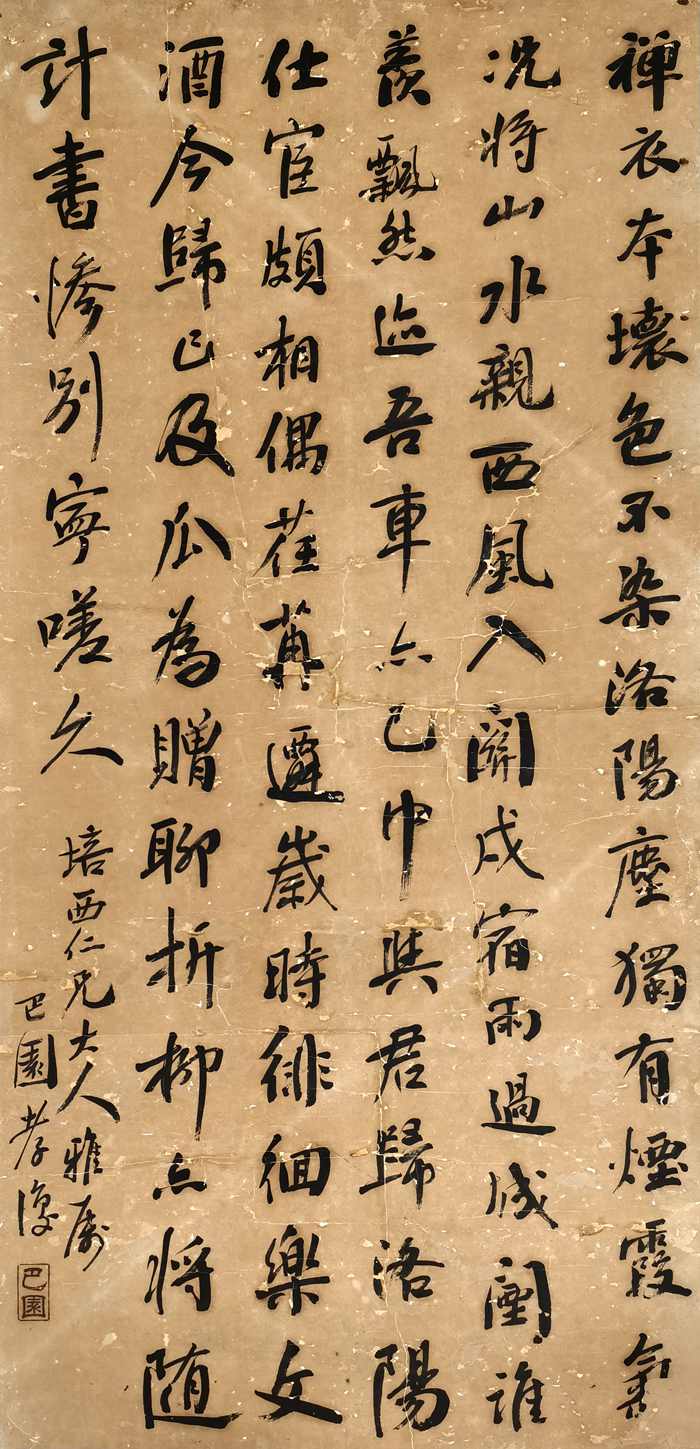 禅衣本壞色不染洛陽塵獨有煙霞氣
况將山水親西風入關戍宿雨過城闉誰
羨飄然迹吾車亦已巾與君歸洛陽
仕宦頗相偶荏苒遷歲時徘徊樂文
酒今歸已及瓜為贈聊折柳亦將随
計書惨别寧嗟久
培西仁兄大人雅属
巴園孝復
巴園